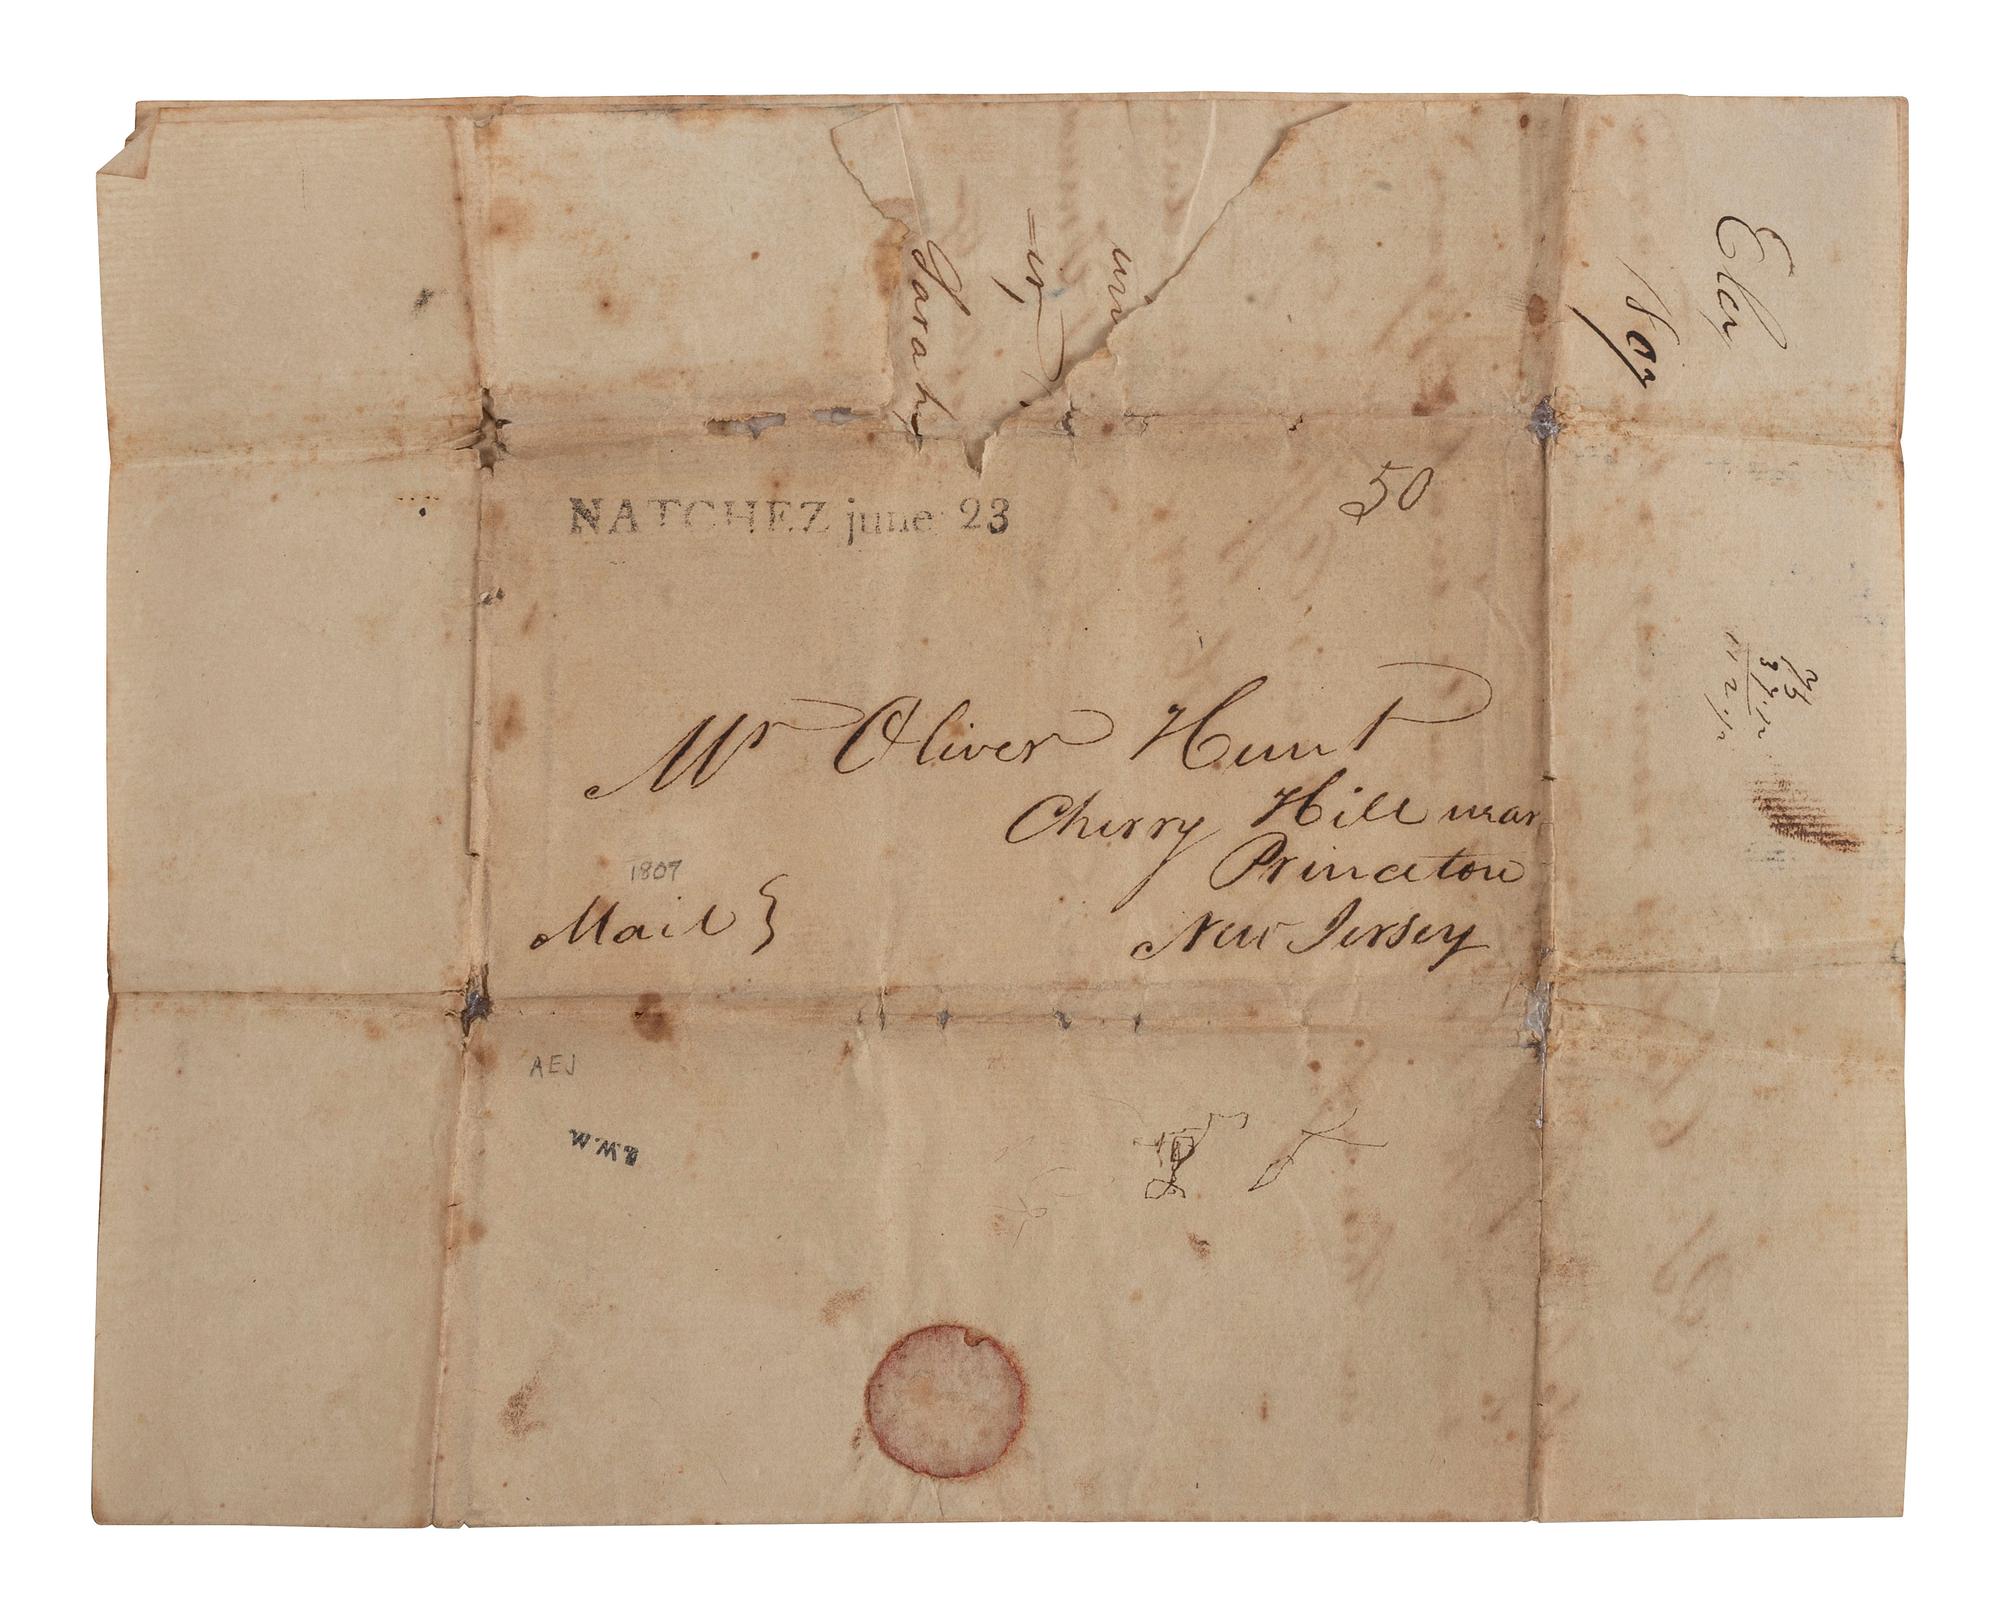 Sarah
NATCHEZ june 23
50
Mr Oliver Hunt
Cherry Hill near
Princeton
New Jersey
1807
Mail
AEJ
E.W.M.
Eley
1807